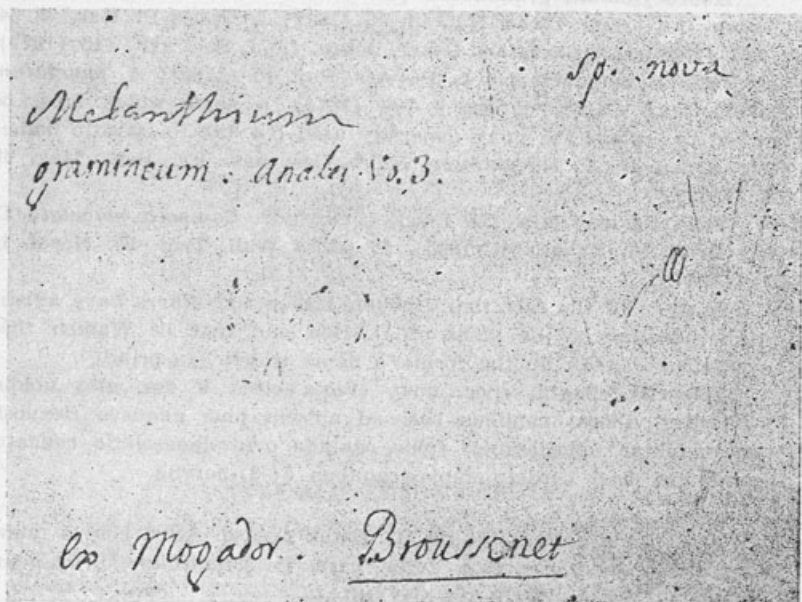 Sp. nova
Melanthium
gramineum. Anales Vo. 3.
ex Mogador. Broussonet